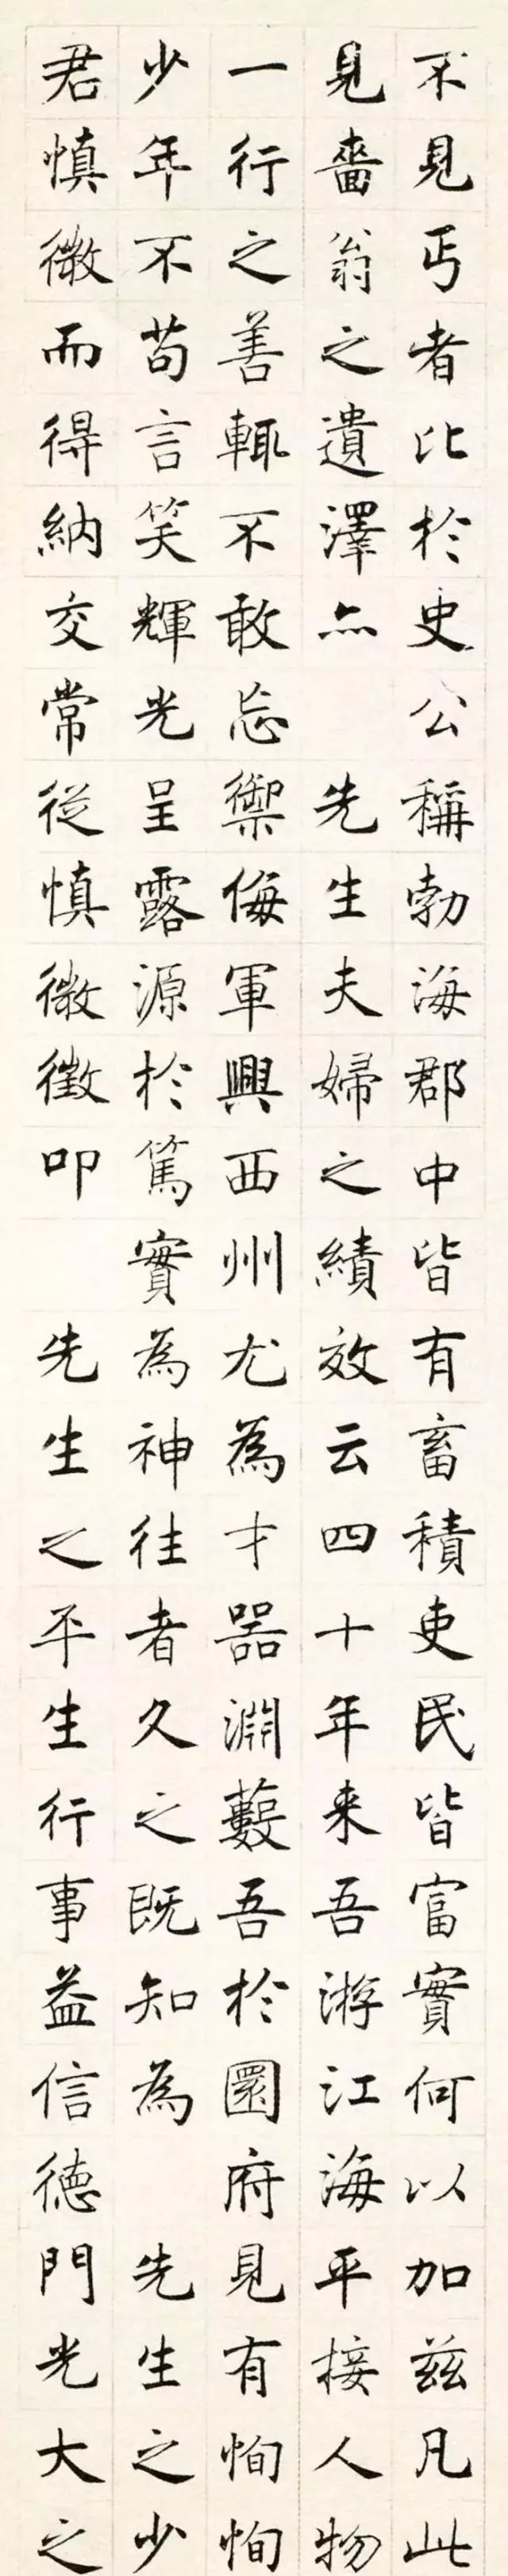 不見丐者比於史公稱勃海郡中皆有畜積吏民皆富實何以加茲凡此
見嗇翁之遺澤亦 先生夫婦之績效云四十年来吾游江海平接人物
一行之善輒不敢忘禦侮軍興西州尤為才器淵藪吾於圜府見有恂恂
少年不苟言笑輝光呈露源於篤實為神往者久之既知為 先生之少
君慎微而得納交常從慎微徵叩 先生之平生行事益信德門光大之